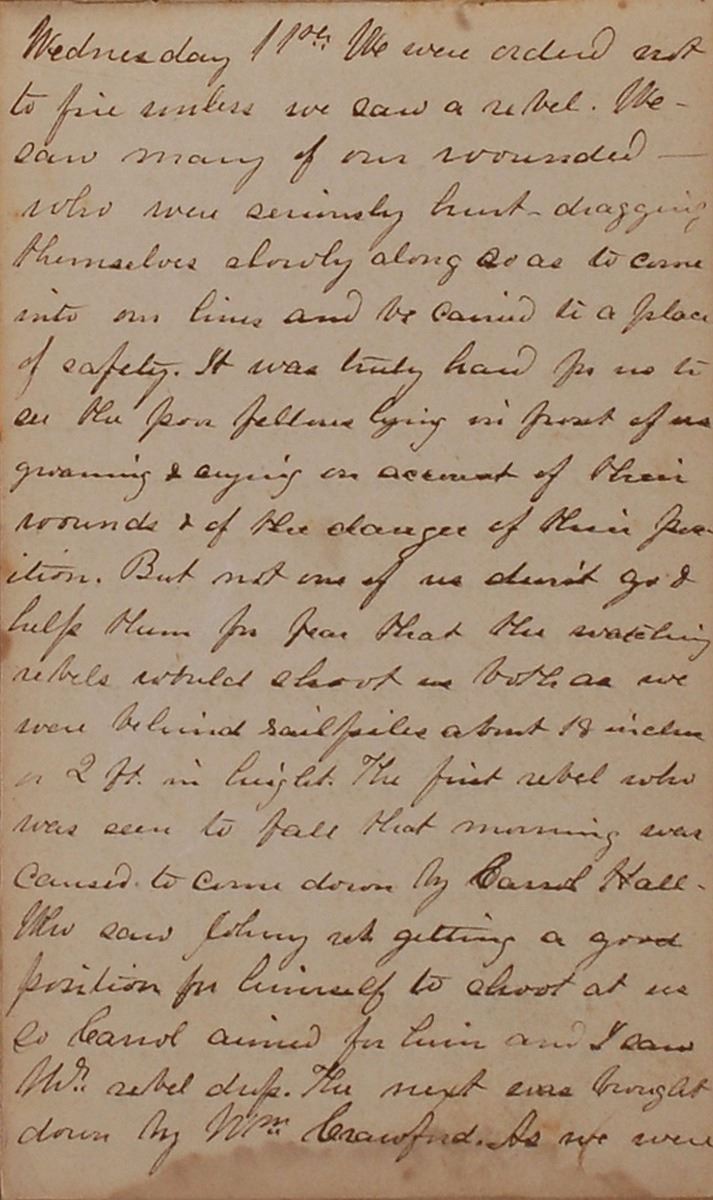 Wednesday 11th We were orderd not
to fire unless we saw a rebel. We -
saw many of our wounded —
who were seriously hurt - dragging
themselves slowly along so as to come
into our lines and be carried to a place
of safety. It was truly hard for us to
see the poor fellows lying in front of us
groaning & crying on account of their
wounds & of the danger of their pos-
ition. But not one of us durst go &
help them for fear that the watching
rebels would shoot us both as we
were behind railpiles about 18 inches
or 2 ft. in height. The first rebel who
was seen to fall that morning was
caused to come down by Carrol Hall -
Who saw Johny reb getting a good
position for himself to shoot at us
so Carrol aimed for him and I saw
Mr. rebel drop. The next was brought
down by Wm Crawford. As we were